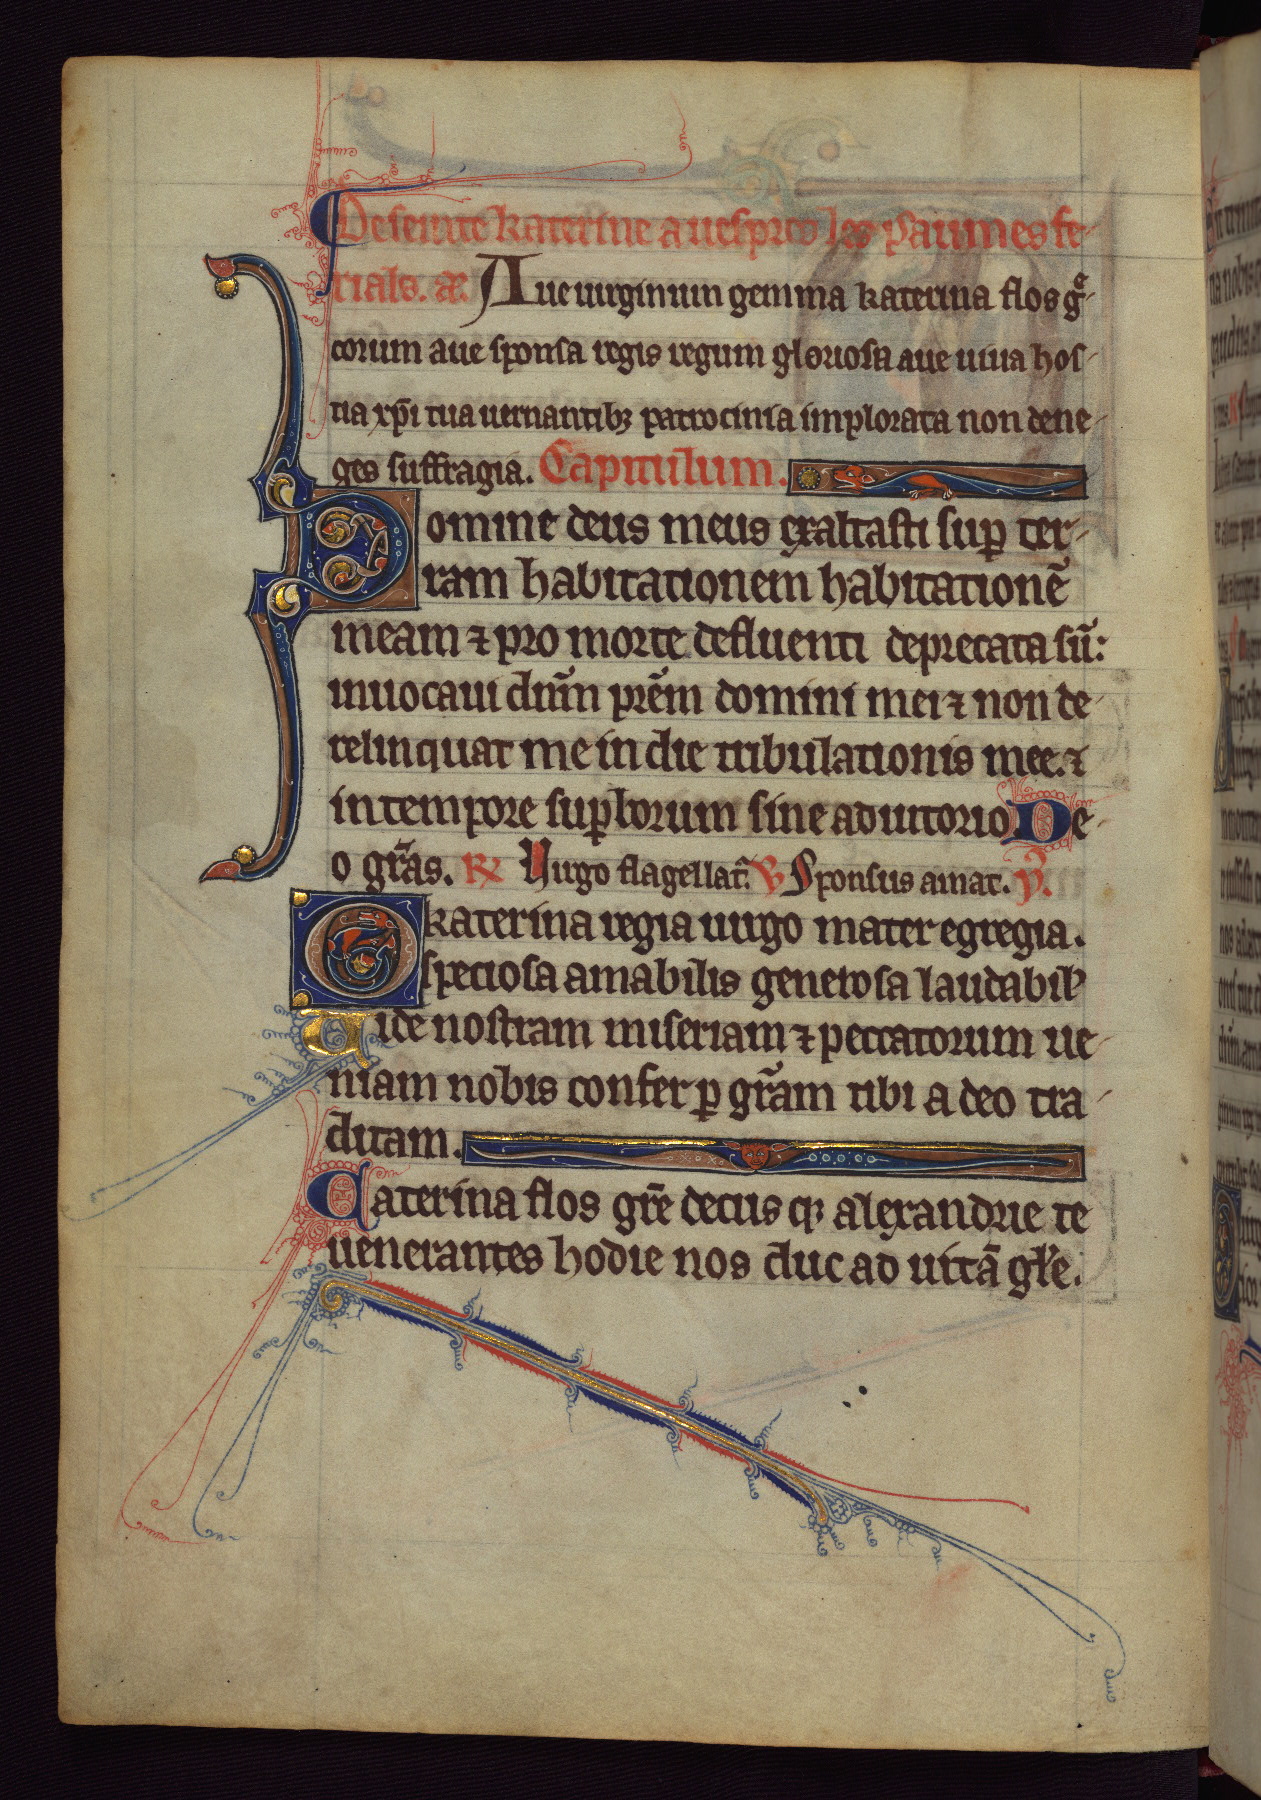 De seinte katerine a uespres les saumes fe-
rials. añ. Aue uirginum gemma katerina flos gre-
corum aue sponsa regis regum gloriosa aue uiua hos-
tia xp̄i tua uernantibꝫ patrocinia implorata non dene-
ges suffragia. Capitulum.
Domine deus meus exaltasti suꝑ ter-
ram habitationem habitationē
meam ⁊ pro morte defluenti deprecata sū:
inuocaui dn̄m prēm domini mei ⁊ non de-
relinquat me in die tribulationis mee. ⁊
in tempore suꝑborum sine adiutorio De-
o gr̄as. ℟ Uirgo flagellat̄. ℣ Sponsus amat. ẏ.
O katerina regia uirgo mater egregia.
speciosa amabilis generosa laudabil̕
Uide nostram miseriam ⁊ peccatorum ue-
niam nobis confer ꝑ gr̄am tibi a deo tra-
ditam.
Caterina flos gr̄e decus qꝫ alexandrie te
uenerantes hodie nos duc ad uitā gl̄e.